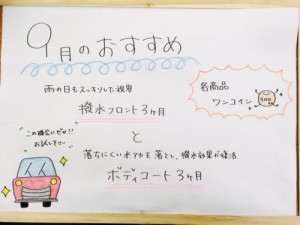 9月のおすすめ
雨の日もスッキリした視界
撥水フロント3ヶ月
と
落ちにくい水アカを落とし、撥水効果が復活
ボディコート3ヶ月
各商品
ワンコイン
500
この機会にぜひ!!
お試し下さい